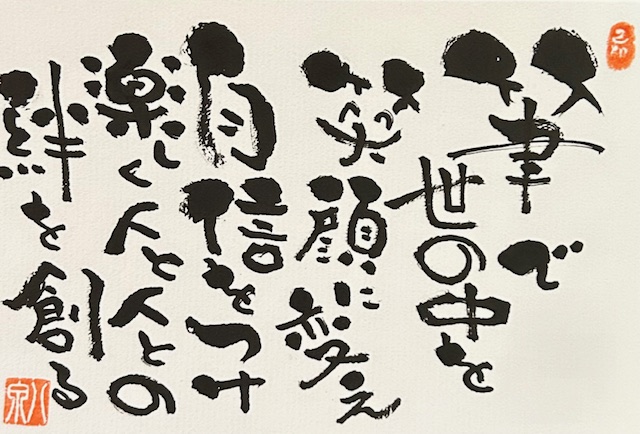 筆で
世の中を
笑顔に変え
自信をつけ
楽しく人と人との
絆を創る
八泉